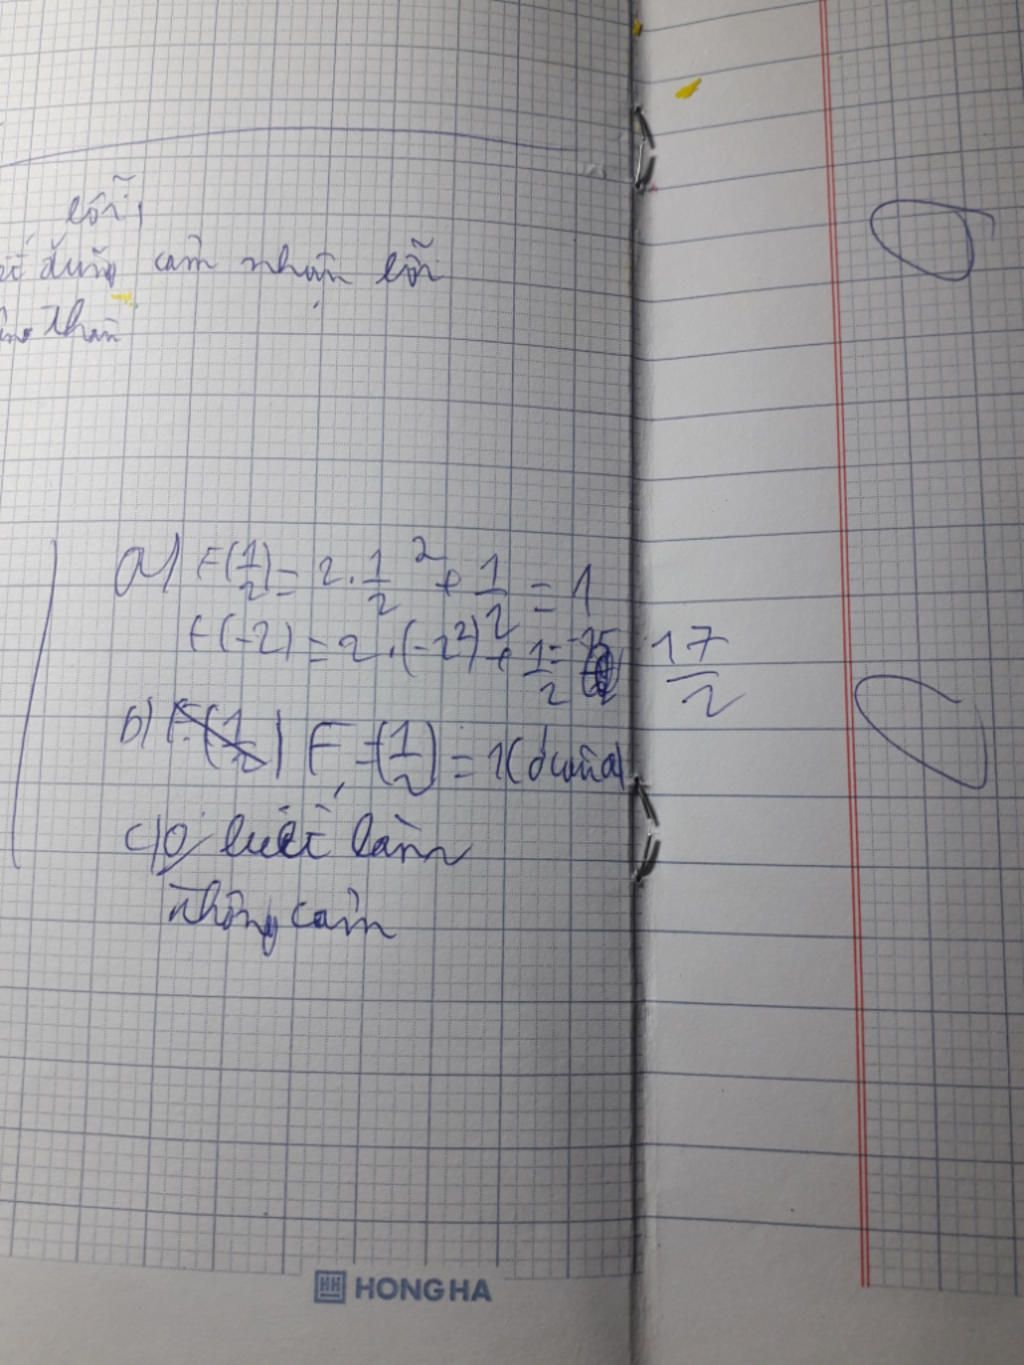 lỗi,
dũng cảm nhận lỗi
thân
a) F(1/2) = 2.1/2² + 1/2 = 1
F(-2) = 2.(-2²) + 1/2 = 17/2
b) F-(1/2) = 1(đúng)
c) 0 biết làm
thông cảm
HH HONG HA